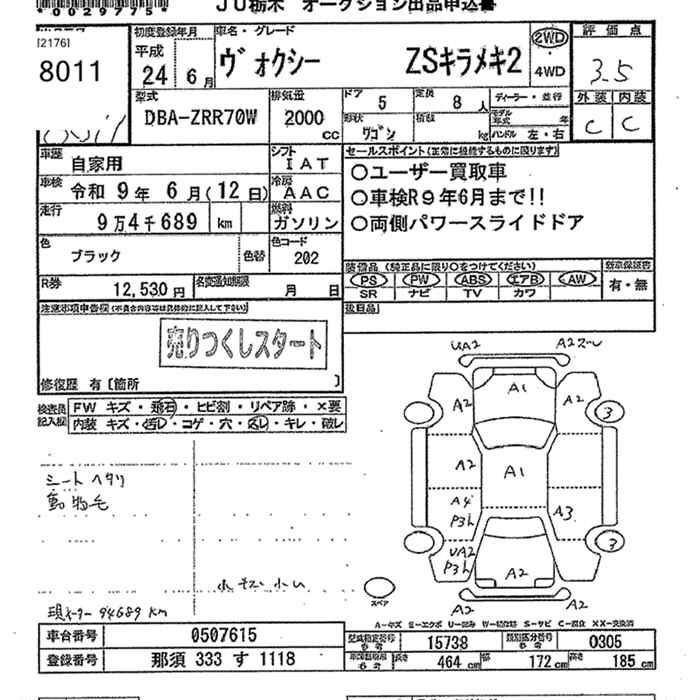 JU栃木 オークション出品申込書
*00297758*
8011
初度登録年月
平成
24 6月
車名・グレード
ヴォクシー ZSキラメキ2
2WD
・
4WD
評価点
3.5
外装 内装
C C
型式
DBA-ZRR70W
排気量
2000
cc
ドア
5
定員
8人
形状
ワゴン
積載
kg
ディーラー・並行
モデル年式 年
ハンドル 左・右
車歴
自家用
シフト
IAT
車検
令和 9年 6月(12日)
冷房
AAC
走行
9万4千689 km
燃料
ガソリン
色
ブラック
色替
色コード
202
R券
12,530円
名変通知期限
月 日
セールスポイント(正常に作動するものに限ります)
○ユーザー買取車
○車検R9年6月まで!!
○両側パワースライドドア
装備品(純正品に限り○をつけてください)
PS PW ABS エアB AW
SR ナビ TV カワ
新車保証書
有・無
注意事項申告欄
売りつくしスタート
修復歴 有〔箇所 〕
検査員記入欄
FW キズ・飛石・ヒビ割・リペア跡・×要
内装 キズ・汚レ・コゲ・穴・スレ・キレ・破レ
シートヘタリ
動物毛
小キズ小凹
現メーター 94689 km
UA2 A2
A1
A2 A2
3
A2 A1
A4
P3凹 A3
UA2
P3凹 3
A2
A2 A2
スペア
A-キズ E-エクボ U-凹み W-補修跡 S-サビ C-腐食 XX-交換済
車台番号
0507615
登録番号
那須 333 す 1118
型式指定番号
参考
15738
類別区分番号
参考
0305
長さ 464 cm 幅 172 cm 高さ 185 cm